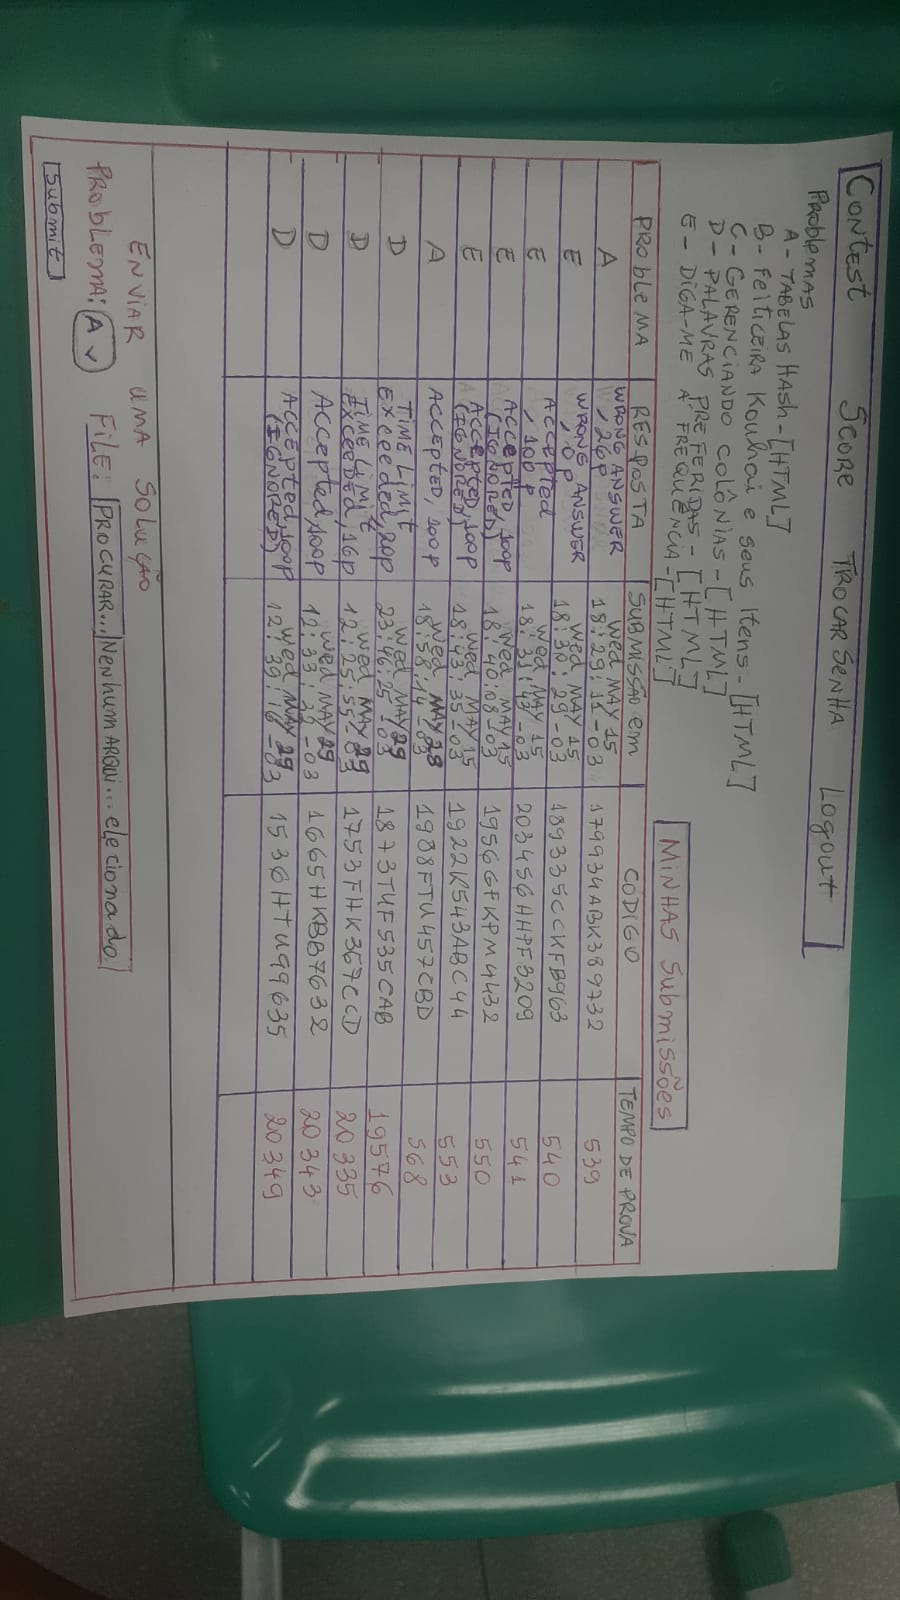 CONTEST SCORE TROCAR SENHA LOGOUT
PROBLEMAS
A - TABELAS HASH - [HTML]
B - FEITICEIRA KOUHAI E SEUS ITENS - [HTML]
C - GERENCIANDO COLÔNIAS - [HTML]
D - PALAVRAS PREFERIDAS - [HTML]
E - DIGA-ME A FREQUÊNCIA - [HTML]
MINHAS SUBMISSÕES
PROBLEMA RESPOSTA SUBMISSÃO EM CÓDIGO TEMPO DE PROVA
A WRONG ANSWER, 26p WED MAY 15 18:29:11-03 179934ABK389732 539
E WRONG ANSWER, 0p WED MAY 15 18:30:29-03 189335CCKFB963 540
E ACCEPTED, 100p WED MAY 15 18:31:42-03 203456HHPF3209 541
E ACCEPTED, 100p (IGNORED) WED MAY 15 18:40:08-03 1956GFKPM4432 550
E ACCEPTED, 100p (IGNORED) WED MAY 15 18:43:35-03 1922K543ABC44 553
A ACCEPTED, 100p WED MAY 28 18:58:14-03 1988FTU457CBD 568
D TIME LIMIT EXCEEDED, 20p WED MAY 29 23:46:25-03 1873TUF535CAB 19576
D TIME LIMIT EXCEEDED, 16p WED MAY 29 12:25:55-03 1753FHK367CCD 20335
D ACCEPTED, 100p WED MAY 29 12:33:26-03 1665HKBB7632 20343
D ACCEPTED, 100p (IGNORED) WED MAY 29 12:39:16-03 1536HTU99635 20349
ENVIAR UMA SOLUÇÃO
PROBLEMA: A FILE: PROCURAR... NENHUM ARQUI...elecionado.
Submit